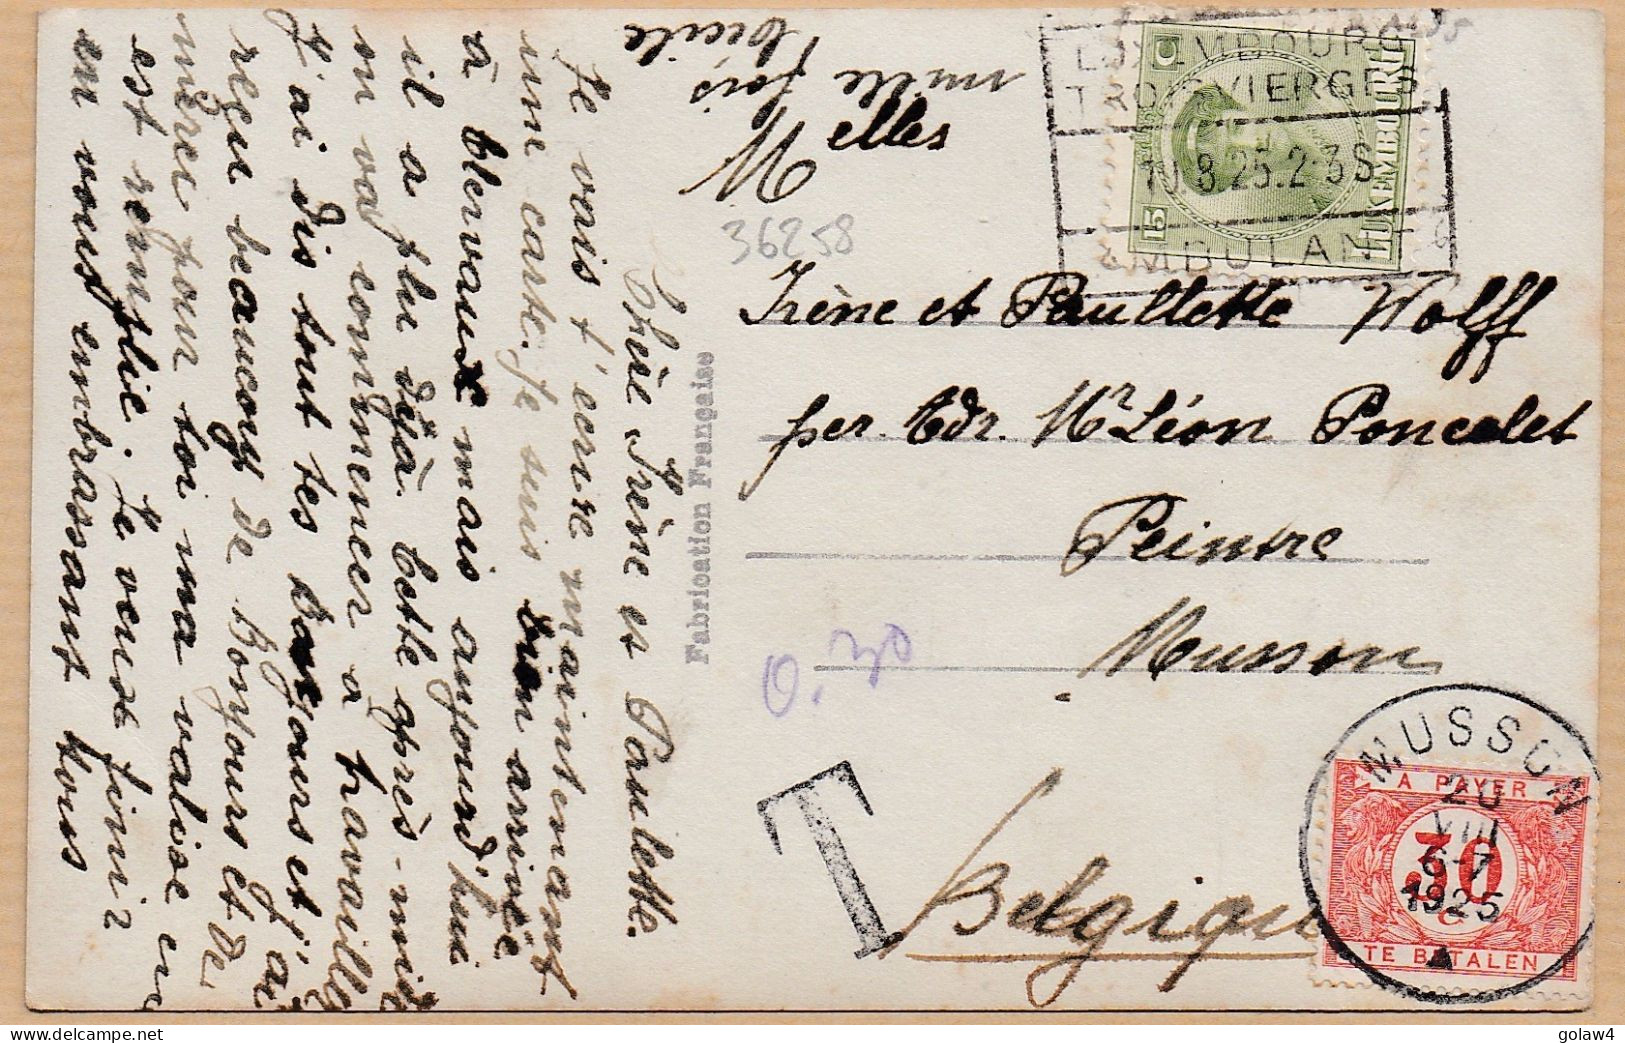 Chère Irène et Paulette.
Je vais t'ecrire maintenant
une carte. Je suis bien arrivée
à blervaux mais aujourd'hui
il a plu déjà. Cette après-midi
on va commencer à travailler
J'ai dis tout tes bonjours et j'ai
reçu beaucoup de bonjours et de
mères pour toi ma valise en
est remplie. Je veux finir
en vous embrassant tous
mille fois
Melles
36258
Irène et Paullette Wolff
per Adr. Mr Léon Poncelet
Peintre
Musson
Belgique
0.30
T
Fabrication Française
LUXEMBOURG
TROISVIERGES
10.8.25.2-3S
AMBULANT
15
C
LUXEMBOURG
MUSSON
20
VIII
6-7
1925
A PAYER
30
C
TE BETALEN
golaw4